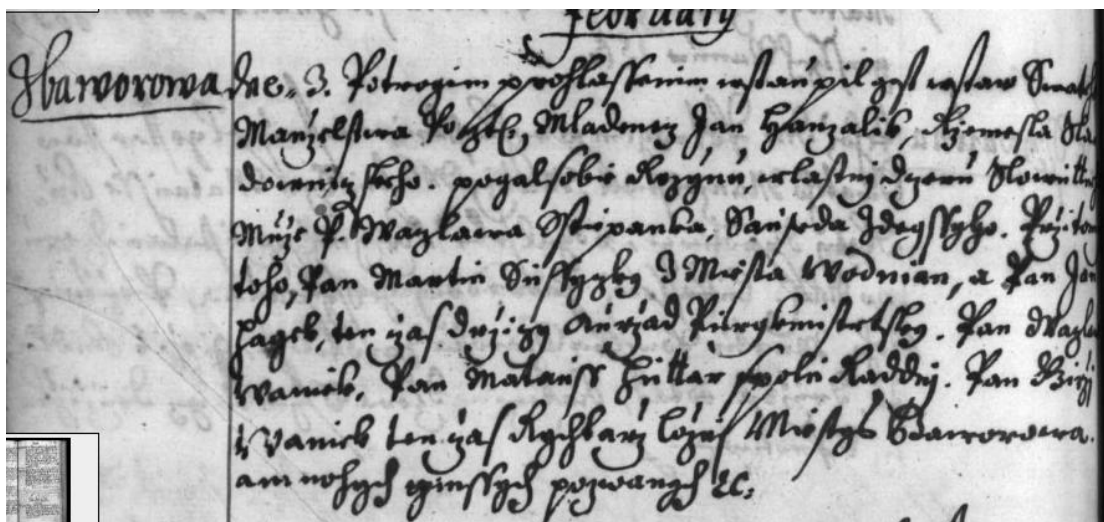 February
Bavorova
dne 3. Potrogim prohlassenim wstaupil gest wstaw Swat
Manzelstwa Mladenecz Jan Hanzalik, Rzemesla Sla
downiczkeho. pogal sobie Rozynu, wlastnj dczeru
Muze P. Waczlawa Sstiepanka, Sauseda Zdegssyho. Przitom
toho, Pan Martin Z Miesta Wodnian, a Pan Jan
Hagek, ten czas drzicy Aurzad Purgkmistrsky. Pan Wacla
Waniek, Pan Matauss spolu Raddnj. Pan Girzj
Waniek ten czas Rychtarz tohoz Miestys Bawororowa.
a mnohych ginssych pozwanych &c.